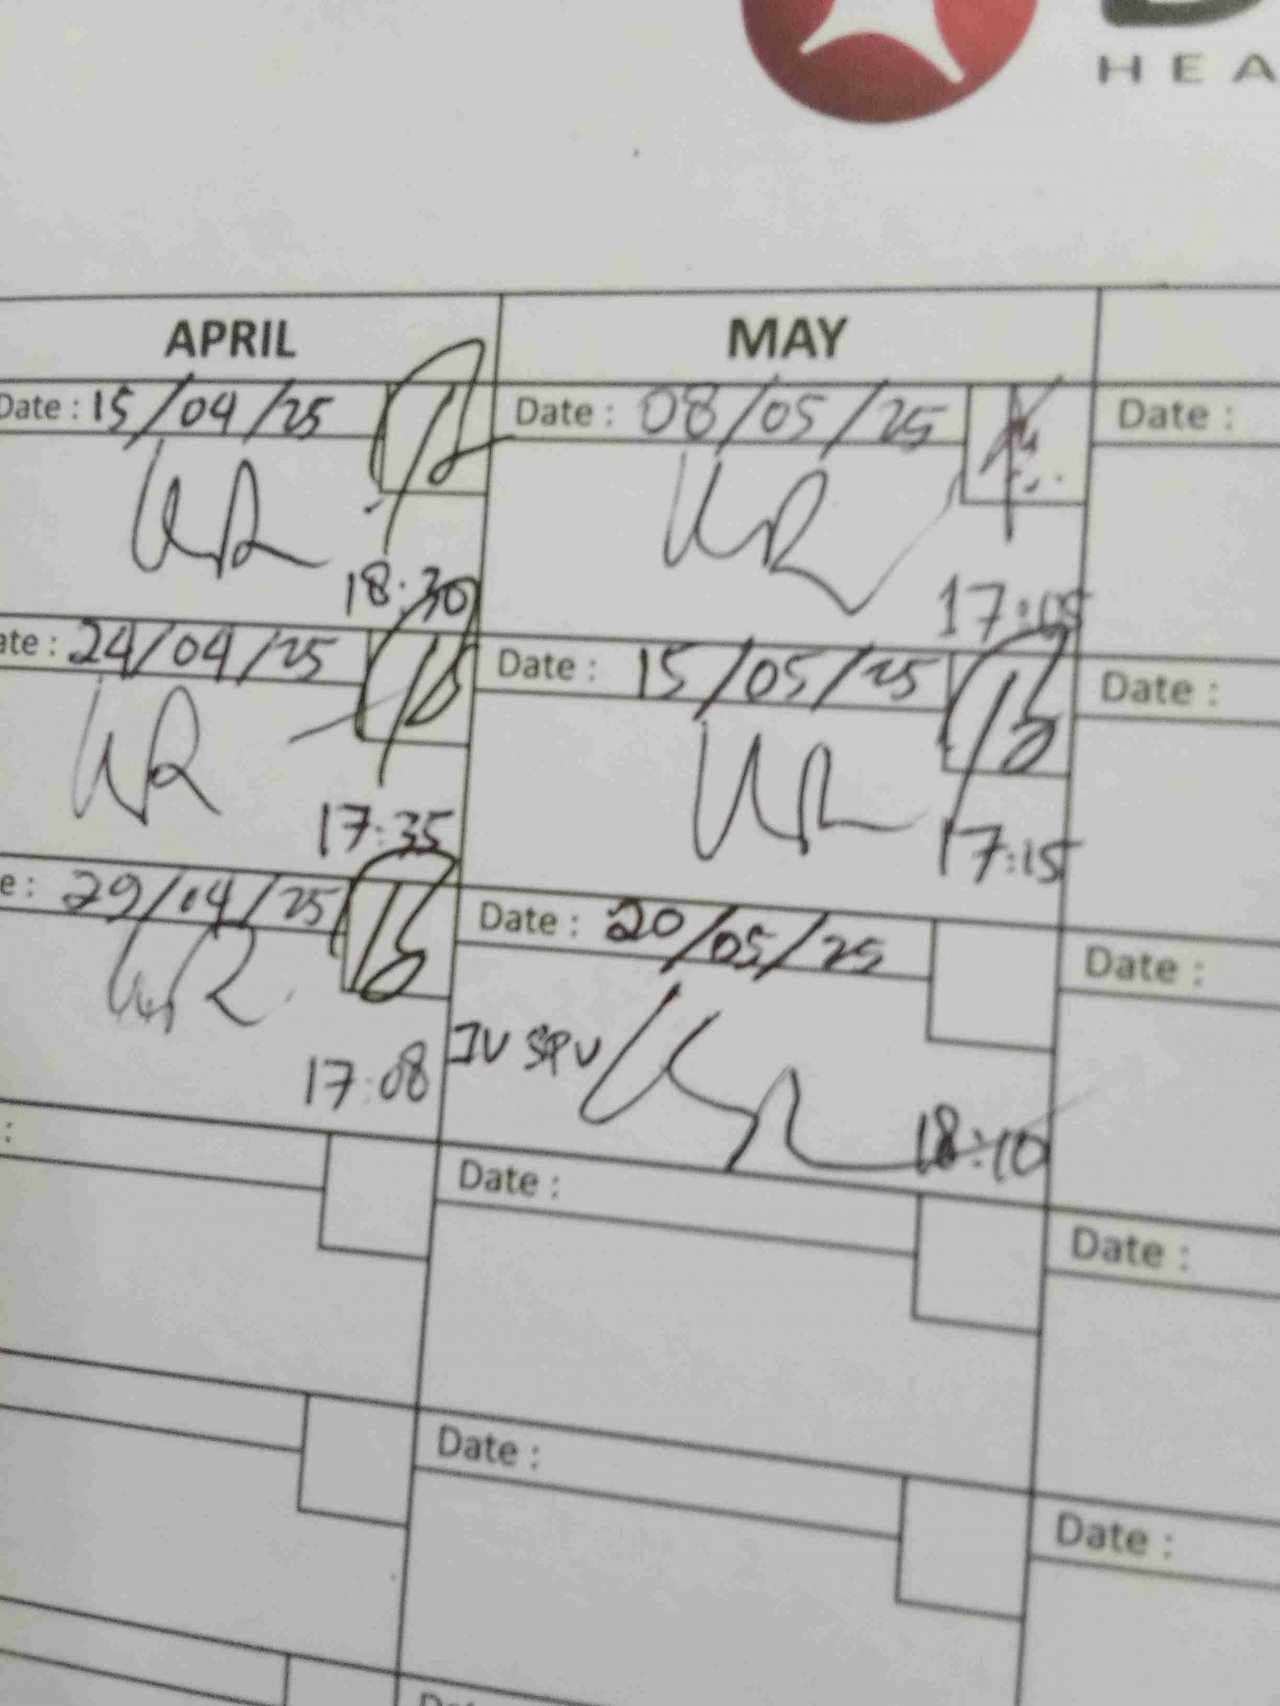 HEA
APRIL
MAY
Date : 15/04/25
Date : 08/05/25
Date :
18:30
17:05
ate : 24/04/25
Date : 15/05/25
Date :
17:35
17:15
e : 29/04/25
Date : 20/05/25
Date :
IV SPV
17:08
18:10
:
Date :
Date :
Date :
Date :